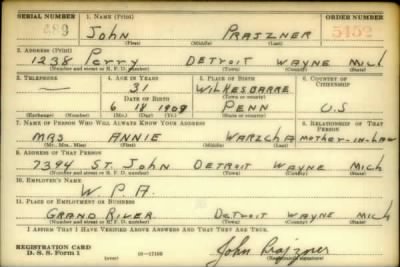 SERIAL NUMBER 1. NAME (Print) ORDER NUMBER
John Prajzner 5452
(First) (Middle) (Last)
2. ADDRESS (Print)
1238 Perry Detroit Wayne Mich
(Number and street or R. F. D. number) (Town) (County) (State)
3. TELEPHONE 4. AGE IN YEARS 5. PLACE OF BIRTH 6. COUNTRY OF CITIZENSHIP
— 31 Wilkesbarre
DATE OF BIRTH (Town or county)
6 18 1909 Penn U.S
(Exchange) (Number) (Mo.) (Day) (Yr.) (State or country)
7. NAME OF PERSON WHO WILL ALWAYS KNOW YOUR ADDRESS 8. RELATIONSHIP OF THAT PERSON
Mrs Annie Warzcha Mother-in-law
(Mr., Mrs., Miss) (First) (Middle) (Last)
9. ADDRESS OF THAT PERSON
7394 St. John Detroit Wayne Mich
(Number and street or R. F. D. number) (Town) (County) (State)
10. EMPLOYER'S NAME
W.P.A
11. PLACE OF EMPLOYMENT OR BUSINESS
Grand River Detroit Wayne Mich
(Number and street or R. F. D. number) (Town) (County) (State)
I AFFIRM THAT I HAVE VERIFIED ABOVE ANSWERS AND THAT THEY ARE TRUE.
REGISTRATION CARD
D. S. S. Form 1 (over) John Prajzner
(Registrant's signature)